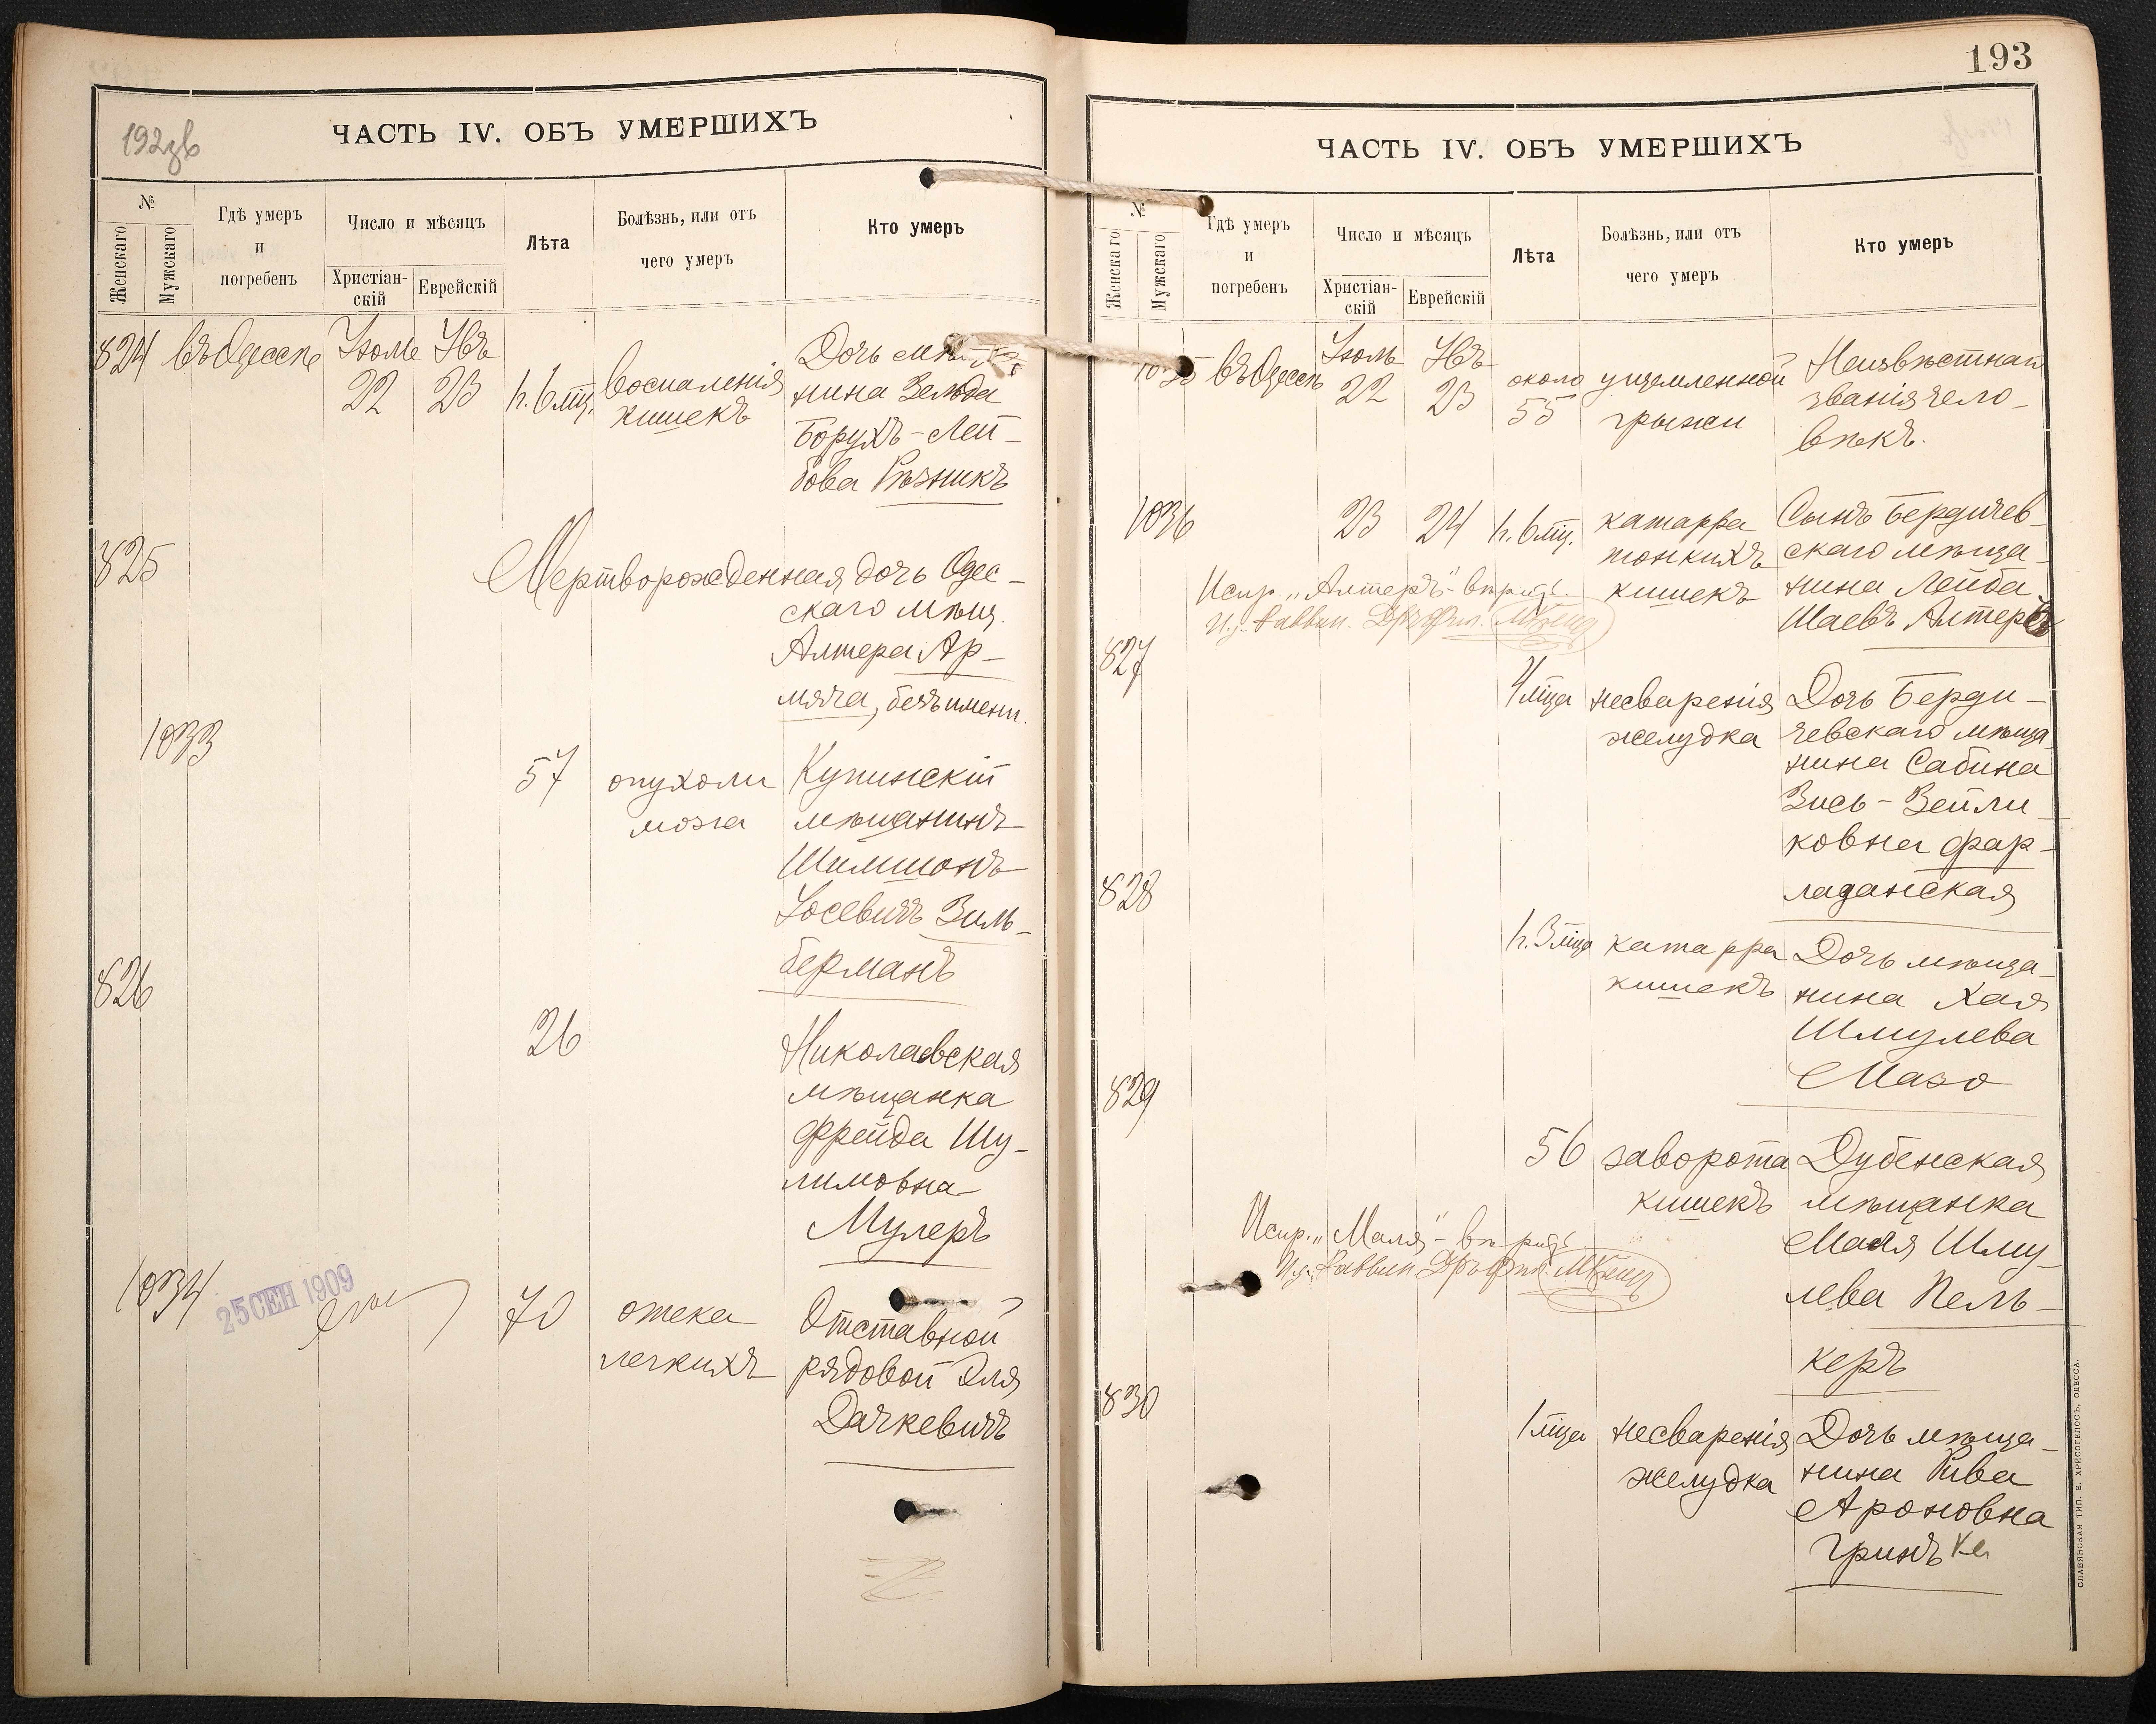 192зв
ЧАСТЬ IV. ОБЪ УМЕРШИХЪ
№
Женскаго
Мужскаго
Гдѣ умеръ
и
погребенъ
Число и мѣсяцъ
Христіан-
скій
Еврейскій
Лѣта
Болѣзнь, или отъ
чего умеръ
Кто умеръ
824 въ Одессѣ Іюль Ябъ
22 23 1 г. 6 мц.
воспаленія
кишекъ
Дочь
нина Зельда
Борухъ-Лей-
бова Рѣзникъ
825
Мертворожденная дочь Одес-
скаго мѣщ.
Алтера Ар-
мяча, безъ имени.
1033
57 опухоли
мозга
Купинскій
мѣщанинъ
Шимшонъ
Іосевичъ Зиль-
берманъ
826
26
Николаевская
мѣщанка
Фрейда Шу-
лимовна
Мулеръ
1034
25 СЕН 1909
70 отека
легкихъ
Отставной
рядовой Эля
Дачкевичъ
193
ЧАСТЬ IV. ОБЪ УМЕРШИХЪ
№
Женскаго
Мужскаго
Гдѣ умеръ
и
погребенъ
Число и мѣсяцъ
Христіан-
скій
Еврейскій
Лѣта
Болѣзнь, или отъ
чего умеръ
Кто умеръ
1035 въ Одессѣ Іюль Ябъ
22 23 около
55
ущемленной
грыжи
Неизвѣстнаго
званія чело-
вѣкъ.
1036
23 24 1 г. 6 мц.
катарра
тонкихъ
кишекъ
Сынъ Бердичев-
скаго мѣща-
нина Лейба
Шаевъ Алтеръ
Испр. „Алтеръ"-
И. д. Раввин.
827
4 мца несваренія
желудка
Дочь Берди-
чевскаго мѣща-
нина Сабина
Зись-Зейли-
ковна Фар-
ладанская
828
1 г. 3 мца катарра
кишекъ
Дочь мѣща-
нина Хая
Шмулева
Мазо
829
56 заворота
кишекъ
Дубенская
мѣщанка
Маля Шму-
лева Пель-
керъ
Испр. „Маля"-
И. д. Раввин.
830
1 мца несваренія
желудка
Дочь мѣща-
нина Рива
Ароновна
Гринъ
СЛАВЯНСКАЯ ТИП. Е. ХРИСОГЕЛОСЪ, ОДЕССА.